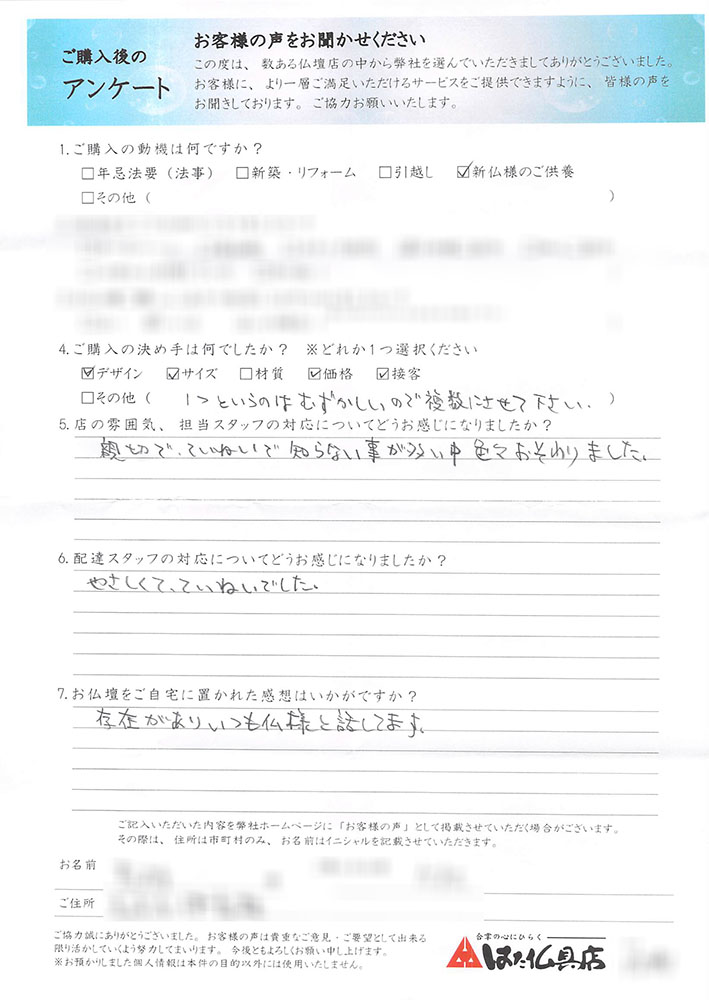 ご購入後の
アンケート
お客様の声をお聞かせください
この度は、数ある仏壇店の中から弊社を選んでいただきましてありがとうございました。
お客様に、より一層ご満足いただけるサービスをご提供できますように、皆様の声を
お聞きしております。ご協力お願いいたします。
1.ご購入の動機は何ですか？
□年忌法要（法事） □新築・リフォーム □引越し ☑新仏様のご供養
□その他（ ）
4.ご購入の決め手は何でしたか？ ※どれか1つ選択ください
☑デザイン ☑サイズ □材質 ☑価格 ☑接客
□その他（ 1つというのはむずかしいので複数にさせて下さい. ）
5.店の雰囲気、担当スタッフの対応についてどうお感じになりましたか？
親切で、ていねいで知らない事が多い中色々おそわりました。
6.配達スタッフの対応についてどうお感じになりましたか？
やさしくて、ていねいでした。
7.お仏壇をご自宅に置かれた感想はいかがですか？
存在がありいつも仏様と話してます。
ご記入いただいた内容を弊社ホームページに「お客様の声」として掲載させていただく場合がございます。
その際は、住所は市町村のみ、お名前はイニシャルを記載させていただきます。
お名前
ご住所
ご協力誠にありがとうございました。お客様の声は貴重なご意見・ご要望として出来る
限り活かしていくよう努力してまいります。今後ともよろしくお願い申し上げます。
※お預かりしました個人情報は本件の目的以外には使用いたしません。
合掌の心にひらく
はた仏具店